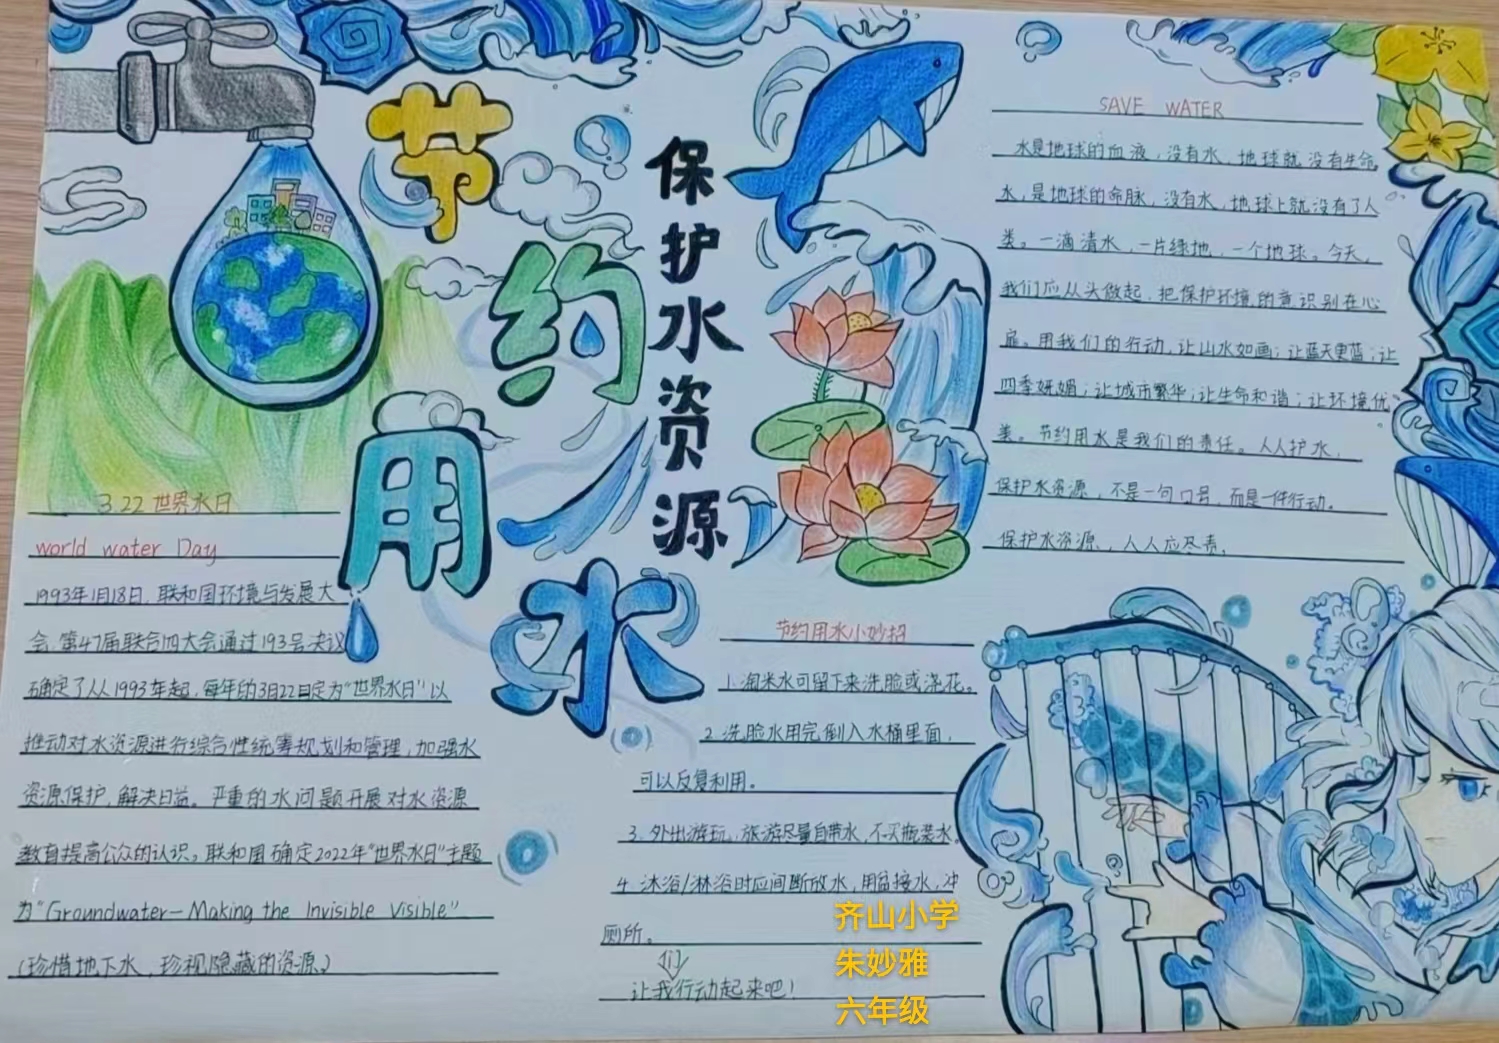 节约用水
保护水资源
3.22 世界水日
world water Day
1993年1月18日，联和国环境与发展大
会，第47届联合四大会通过193号决议
确定了从1993年起，每年的3月22日定为“世界水日”以
推动对水资源进行综合性统筹规划和管理，加强水
资源保护，解决日益。严重的水问题开展对水资源
教育提高公众的认识。联和国确定2022年“世界水日”主题
为“Groundwater—Making the Invisible Visible”
(珍惜地下水，珍视隐藏的资源。)
SAVE WATER
水是地球的血液，没有水，地球就没有生命。
水，是地球的命脉，没有水，地球上就没有了人
类。一滴清水，一片绿地，一个地球。今天，
我们应从头做起，把保护环境的意识别在心
扉。用我们的行动，让山水如画；让蓝天更蓝；让
四季妩媚；让城市繁华；让生命和谐；让环境优
美。节约用水是我们的责任。人人护水，
保护水资源，不是一句口号，而是一件行动。
保护水资源，人人应尽责。
节约用水小妙招
1.淘米水可留下来洗脸或浇花。
2.洗脸水用完倒入水桶里面，
可以反复利用。
3.外出游玩，旅游尽量自带水，不买瓶装水。
4.沐浴/淋浴时应间断放水，用盆接水，冲
厕所。
让我们行动起来吧！
齐山小学
朱妙雅
六年级